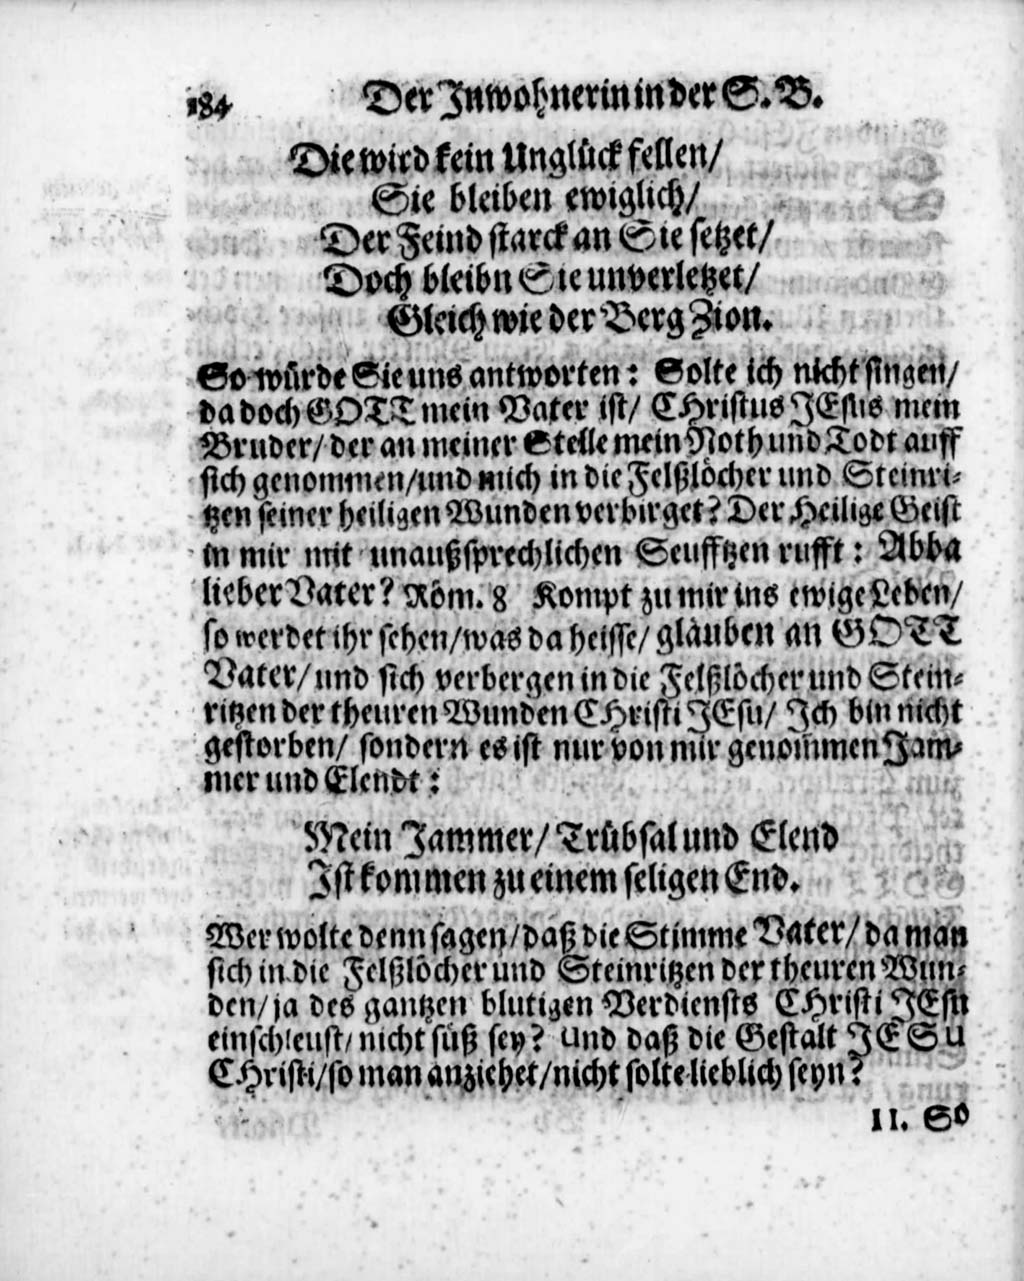 184 Der Inwohnerin in der S. B.
Die wird kein Unglück fellen/
Sie bleiben ewiglich/
Der Feind starck an Sie setzet/
Doch bleibn Sie unverletzet/
Gleich wie der Berg Zion.
So würde Sie uns antworten: Solte ich nicht singen/
da doch GOTT mein Vater ist/ CHristus JEsus mein
Bruder/ der an meiner Stelle mein Noth und Todt auff
sich genommen/und mich in die Felßlöcher und Steinri-
tzen seiner heiligen Wunden verbirget? Der Heilige Geist
in mir mit unaußsprechlichen Seufftzen rufft: Abba
lieber Vater? Röm. 8 Kompt zu mir ins ewige Leben/
so werdet ihr sehen/was da heisse/ gläuben an GOTT
Vater/und sich verbergen in die Felßlöcher und Stein-
ritzen der theuren Wunden CHristi JEsu/ Ich bin nicht
gestorben/ sondern es ist nur von mir genom̃men Jam-
mer und Elendt:
Mein Jammer/ Trübsal und Elend
Ist kommen zu einem seligen End.
Wer wolte denn sagen/daß die Stimme Vater/da man
sich in die Felßlöcher und Steinritzen der theuren Wun-
den/ja des gantzen blutigen Verdiensts CHristi JEsu
einschleust/nicht süß sey? Und daß die Gestalt JESU
CHristi/so man anziehet/nicht solte lieblich seyn?
II. So